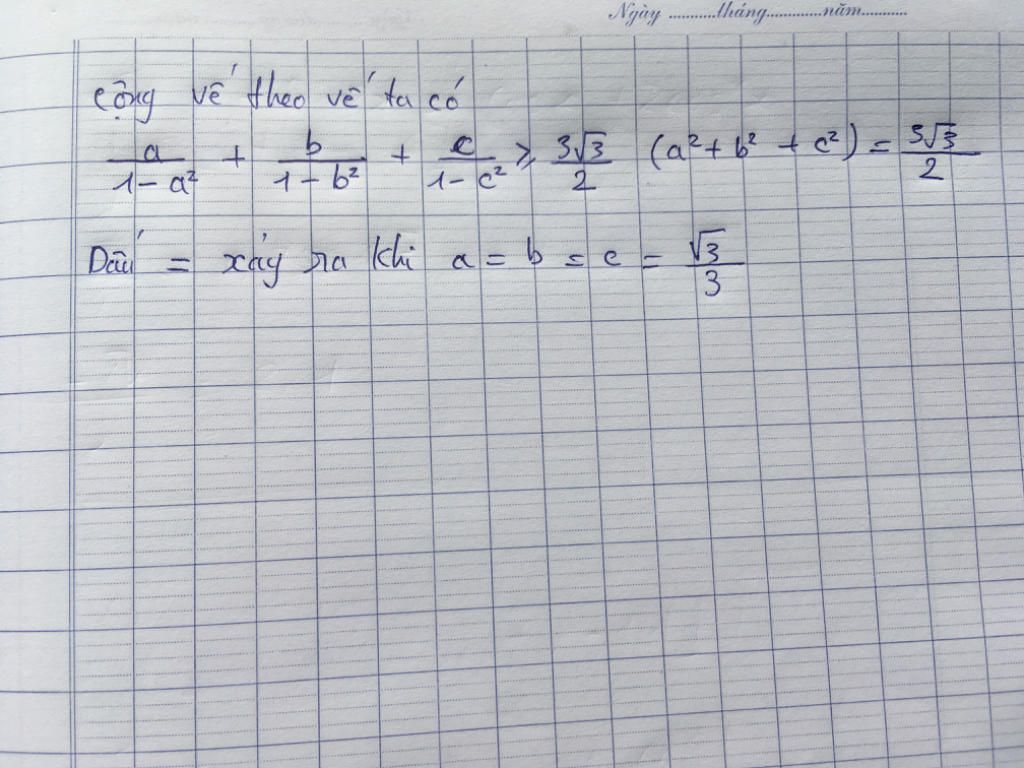 Ngày ...........tháng............năm..........
cộng vế theo vế ta có
a/(1-a²) + b/(1-b²) + c/(1-c²) ≥ 3√3/2 (a²+b²+c²) = 3√3/2
Dấu = xảy ra khi a = b = c = √3/3